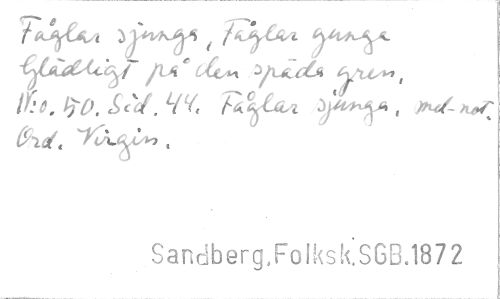 Fåglar sjunga, Fåglar gunga
Glädligt på den späda gren,
N:o. 50. Sid. 44. Fåglar sjunga. md-not.
Ord. Virgin.
Sandberg, Folksk. SGB. 1872